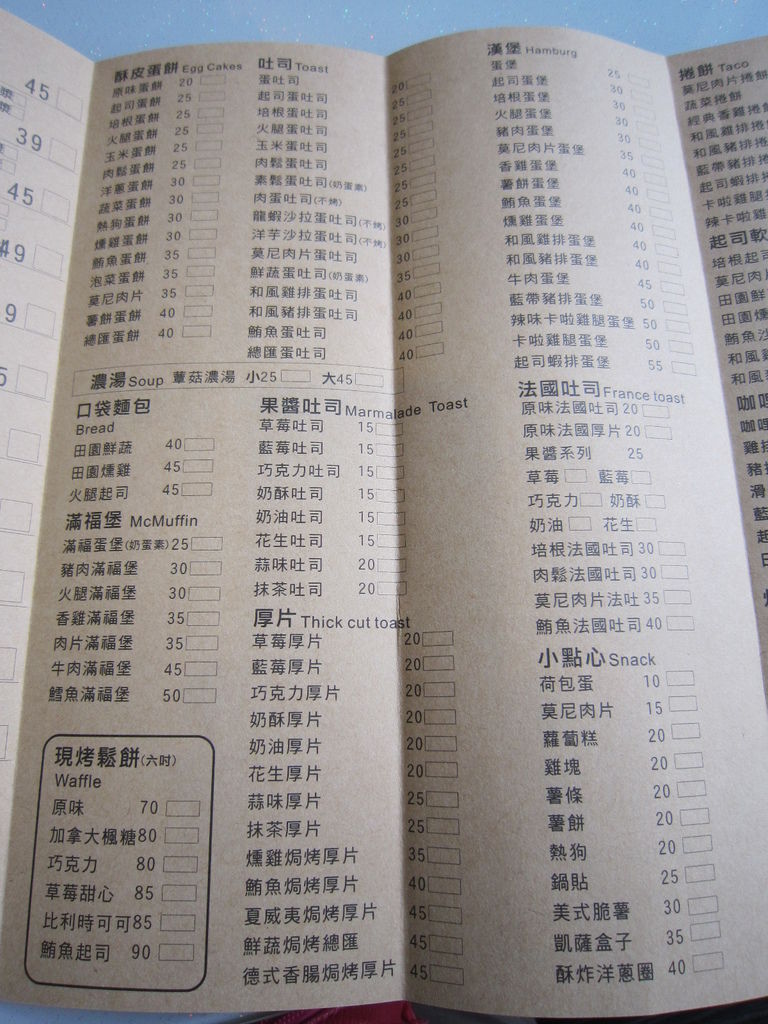 45
39
45
49
9
5
酥皮蛋餅 Egg Cakes
原味蛋餅 20
起司蛋餅 25
培根蛋餅 25
火腿蛋餅 25
玉米蛋餅 25
肉鬆蛋餅 25
洋蔥蛋餅 30
蔬菜蛋餅 30
熱狗蛋餅 30
燻雞蛋餅 30
鮪魚蛋餅 35
泡菜蛋餅 35
莫尼肉片 35
薯餅蛋餅 40
總匯蛋餅 40
吐司 Toast
蛋吐司 20
起司蛋吐司 25
培根蛋吐司 25
火腿蛋吐司 25
玉米蛋吐司 25
肉鬆蛋吐司 25
素鬆蛋吐司(奶蛋素) 25
肉蛋吐司(不烤) 25
龍蝦沙拉蛋吐司(不烤) 30
洋芋沙拉蛋吐司(不烤) 30
莫尼肉片蛋吐司 30
鮮蔬蛋吐司(奶蛋素) 35
和風雞排蛋吐司 40
和風豬排蛋吐司 40
鮪魚蛋吐司 40
總匯蛋吐司 40
濃湯 Soup 蕈菇濃湯 小25 大45
口袋麵包
Bread
田園鮮蔬 40
田園燻雞 45
火腿起司 45
滿福堡 McMuffin
滿福蛋堡(奶蛋素) 25
豬肉滿福堡 30
火腿滿福堡 30
香雞滿福堡 35
肉片滿福堡 35
牛肉滿福堡 45
鱈魚滿福堡 50
現烤鬆餅(六吋)
Waffle
原味 70
加拿大楓糖 80
巧克力 80
草莓甜心 85
比利時可可 85
鮪魚起司 90
果醬吐司 Marmalade Toast
草莓吐司 15
藍莓吐司 15
巧克力吐司 15
奶酥吐司 15
奶油吐司 15
花生吐司 15
蒜味吐司 20
抹茶吐司 20
厚片 Thick cut toast
草莓厚片 20
藍莓厚片 20
巧克力厚片 20
奶酥厚片 20
奶油厚片 20
花生厚片 20
蒜味厚片 25
抹茶厚片 25
燻雞焗烤厚片 35
鮪魚焗烤厚片 40
夏威夷焗烤厚片 45
鮮蔬焗烤總匯 45
德式香腸焗烤厚片 45
漢堡 Hamburg
蛋堡 25
起司蛋堡 30
培根蛋堡 30
火腿蛋堡 30
豬肉蛋堡 30
莫尼肉片蛋堡 35
香雞蛋堡 40
薯餅蛋堡 40
鮪魚蛋堡 40
燻雞蛋堡 40
和風雞排蛋堡 40
和風豬排蛋堡 40
牛肉蛋堡 45
藍帶豬排蛋堡 50
辣味卡啦雞腿蛋堡 50
卡啦雞腿蛋堡 50
起司蝦排蛋堡 55
法國吐司 France toast
原味法國吐司 20
原味法國厚片 20
果醬系列 25
草莓 藍莓
巧克力 奶酥
奶油 花生
培根法國吐司 30
肉鬆法國吐司 30
莫尼肉片法吐 35
鮪魚法國吐司 40
小點心 Snack
荷包蛋 10
莫尼肉片 15
蘿蔔糕 20
雞塊 20
薯條 20
薯餅 20
熱狗 20
鍋貼 25
美式脆薯 30
凱薩盒子 35
酥炸洋蔥圈 40
捲餅 Taco
莫尼肉片捲餅
蔬菜捲餅
經典香雞捲
和風雞排捲
和風豬排捲
藍帶豬排捲
起司蝦排捲
卡啦雞腿
辣卡啦雞
起司軟
培根起
莫尼肉
田園鮮
田園燻
鮪魚沙
和風雞
和風
咖
咖
雞排
豬
滑
藍
起